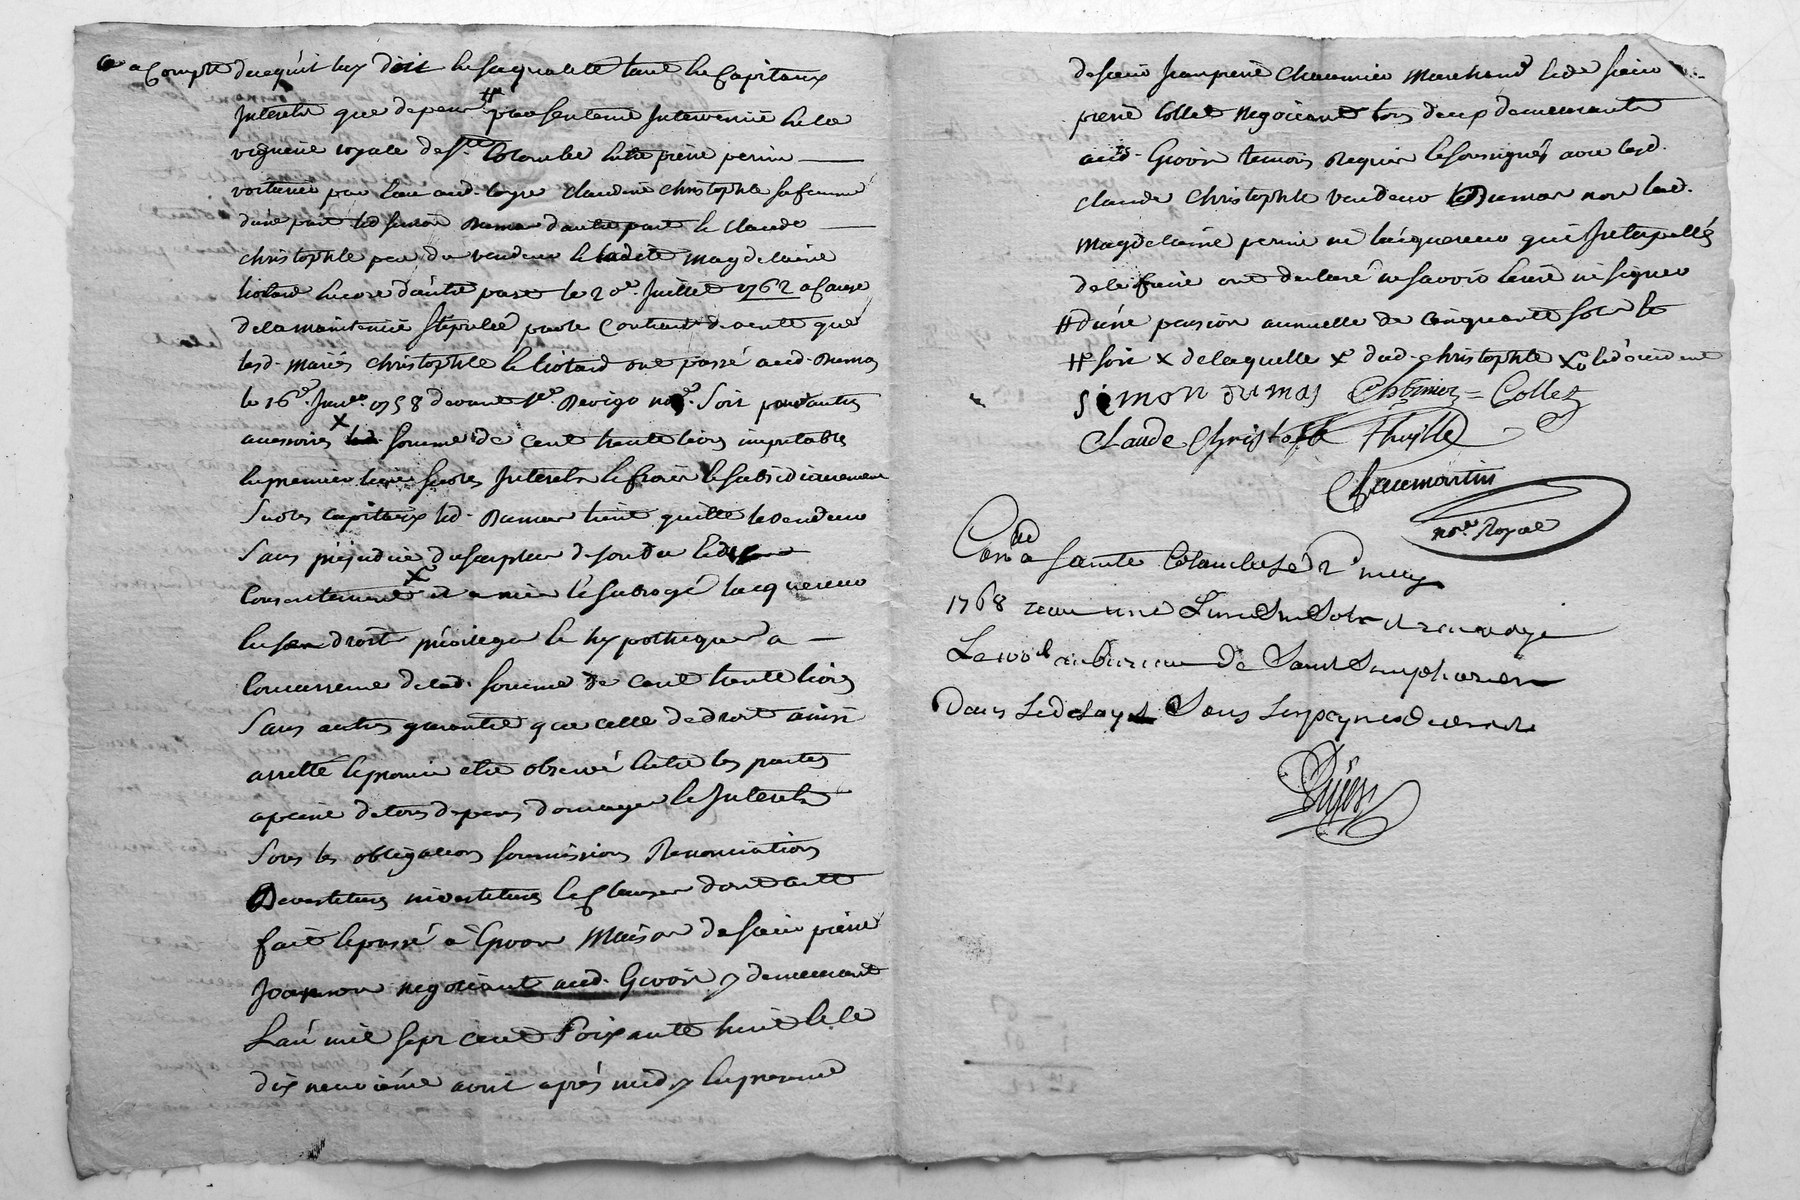 a Compte de ce qu'il luy doit en sa qualité tant en Capitaux
Interets que depens # presentement Intervenüe en la
viguerie royale de Ste. Colombe entre pierre perrin
voiturier par eau aud. Claudine Christophle sa femme
d'une part led simon Dumas d'autre part et Claude
christophle pere du vendeur et ladite magdelaine
liotard encore d'autre part le 20e. Juillet 1762 a Cause
de la maintenüe stipulée par le Contract de vente que
lesd. mariés christophle et liotard ont passé aud. Dumas
le 16e. 1758 devant Me. nore. Soit pour autres
accessoires x somme de cent trente livres imputables
en premier lieu sur les Interets et frais et subsidiairement
Sur les capitaux led. Dumas tient quitte le vendeur
Sans prejudice du surplus de son du
Consentement x et a mis et subrogé l'acquereur
en ses droits privileges et hypotheques a
Concurrence de lad. somme de cent trente livres
Sans autre garantie que celle de droit ainsi
arretté et promis etre observé entre les parties
a peine de tous depens domages et Interets
Sous les obligations soumissions Renonciations
Devestitures investitures et Clauses dont acte
fait et passé à Givors Maison de sieur pierre
negociant aud. Givors y demeurant
L'an mil sept cent Soixante huit et le
dix neuvième avril après midy en presence
de sieur Jean pierre Marchand et de sieur
pierre Collet Negociant tous deux demeurants
aud. Givors temoins Requis et soussignés avec lesd.
claude Christophle vendeur et Dumas non lad.
Magdelaine perrin ni l'acquereur qui Interpellés
de le faire ont declaré ne savoir ecrire ni signer
# d'une pension annuelle de cinquante sols et
# soit x de laquelle x dud. christophle x
simon dumas Collet
Claude Christofle Thuillé
Chaumartin
nore. Royal
Conlé a sainte Colombe Le 2e may
1768 receu une Livre Six Sols et renvoyé
Le 100e au bureau de Saint Simphorien
Dans Le delay Sous Les peynes de droit